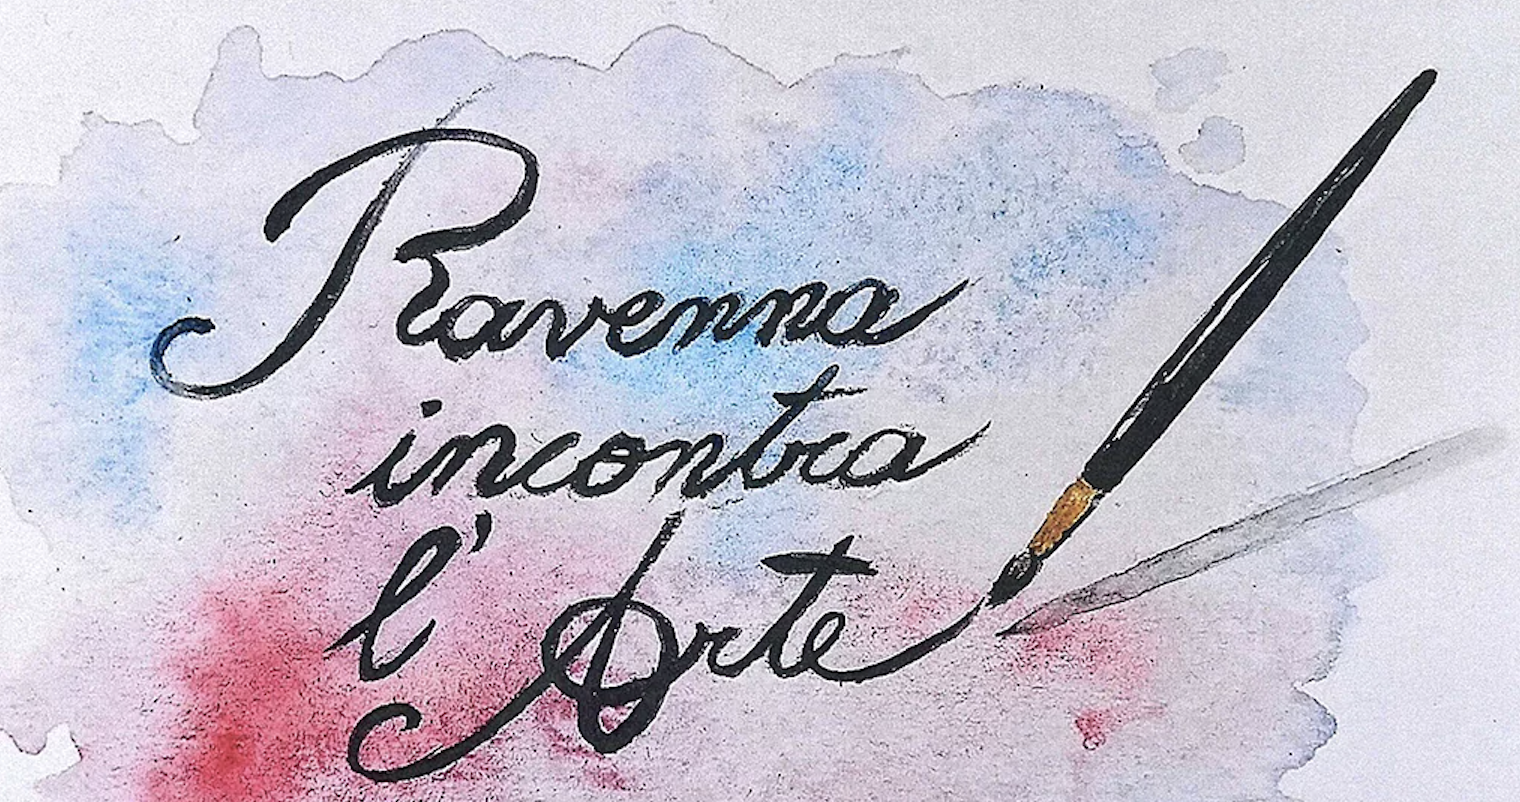 Ravenna
incontra
l'Arte